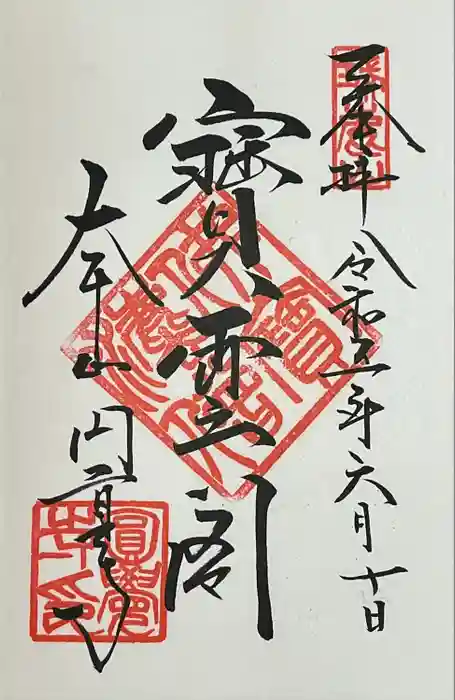 奉拝 令和五年六月十日
寶雲閣
大本山 円覚寺
圓覺寺印